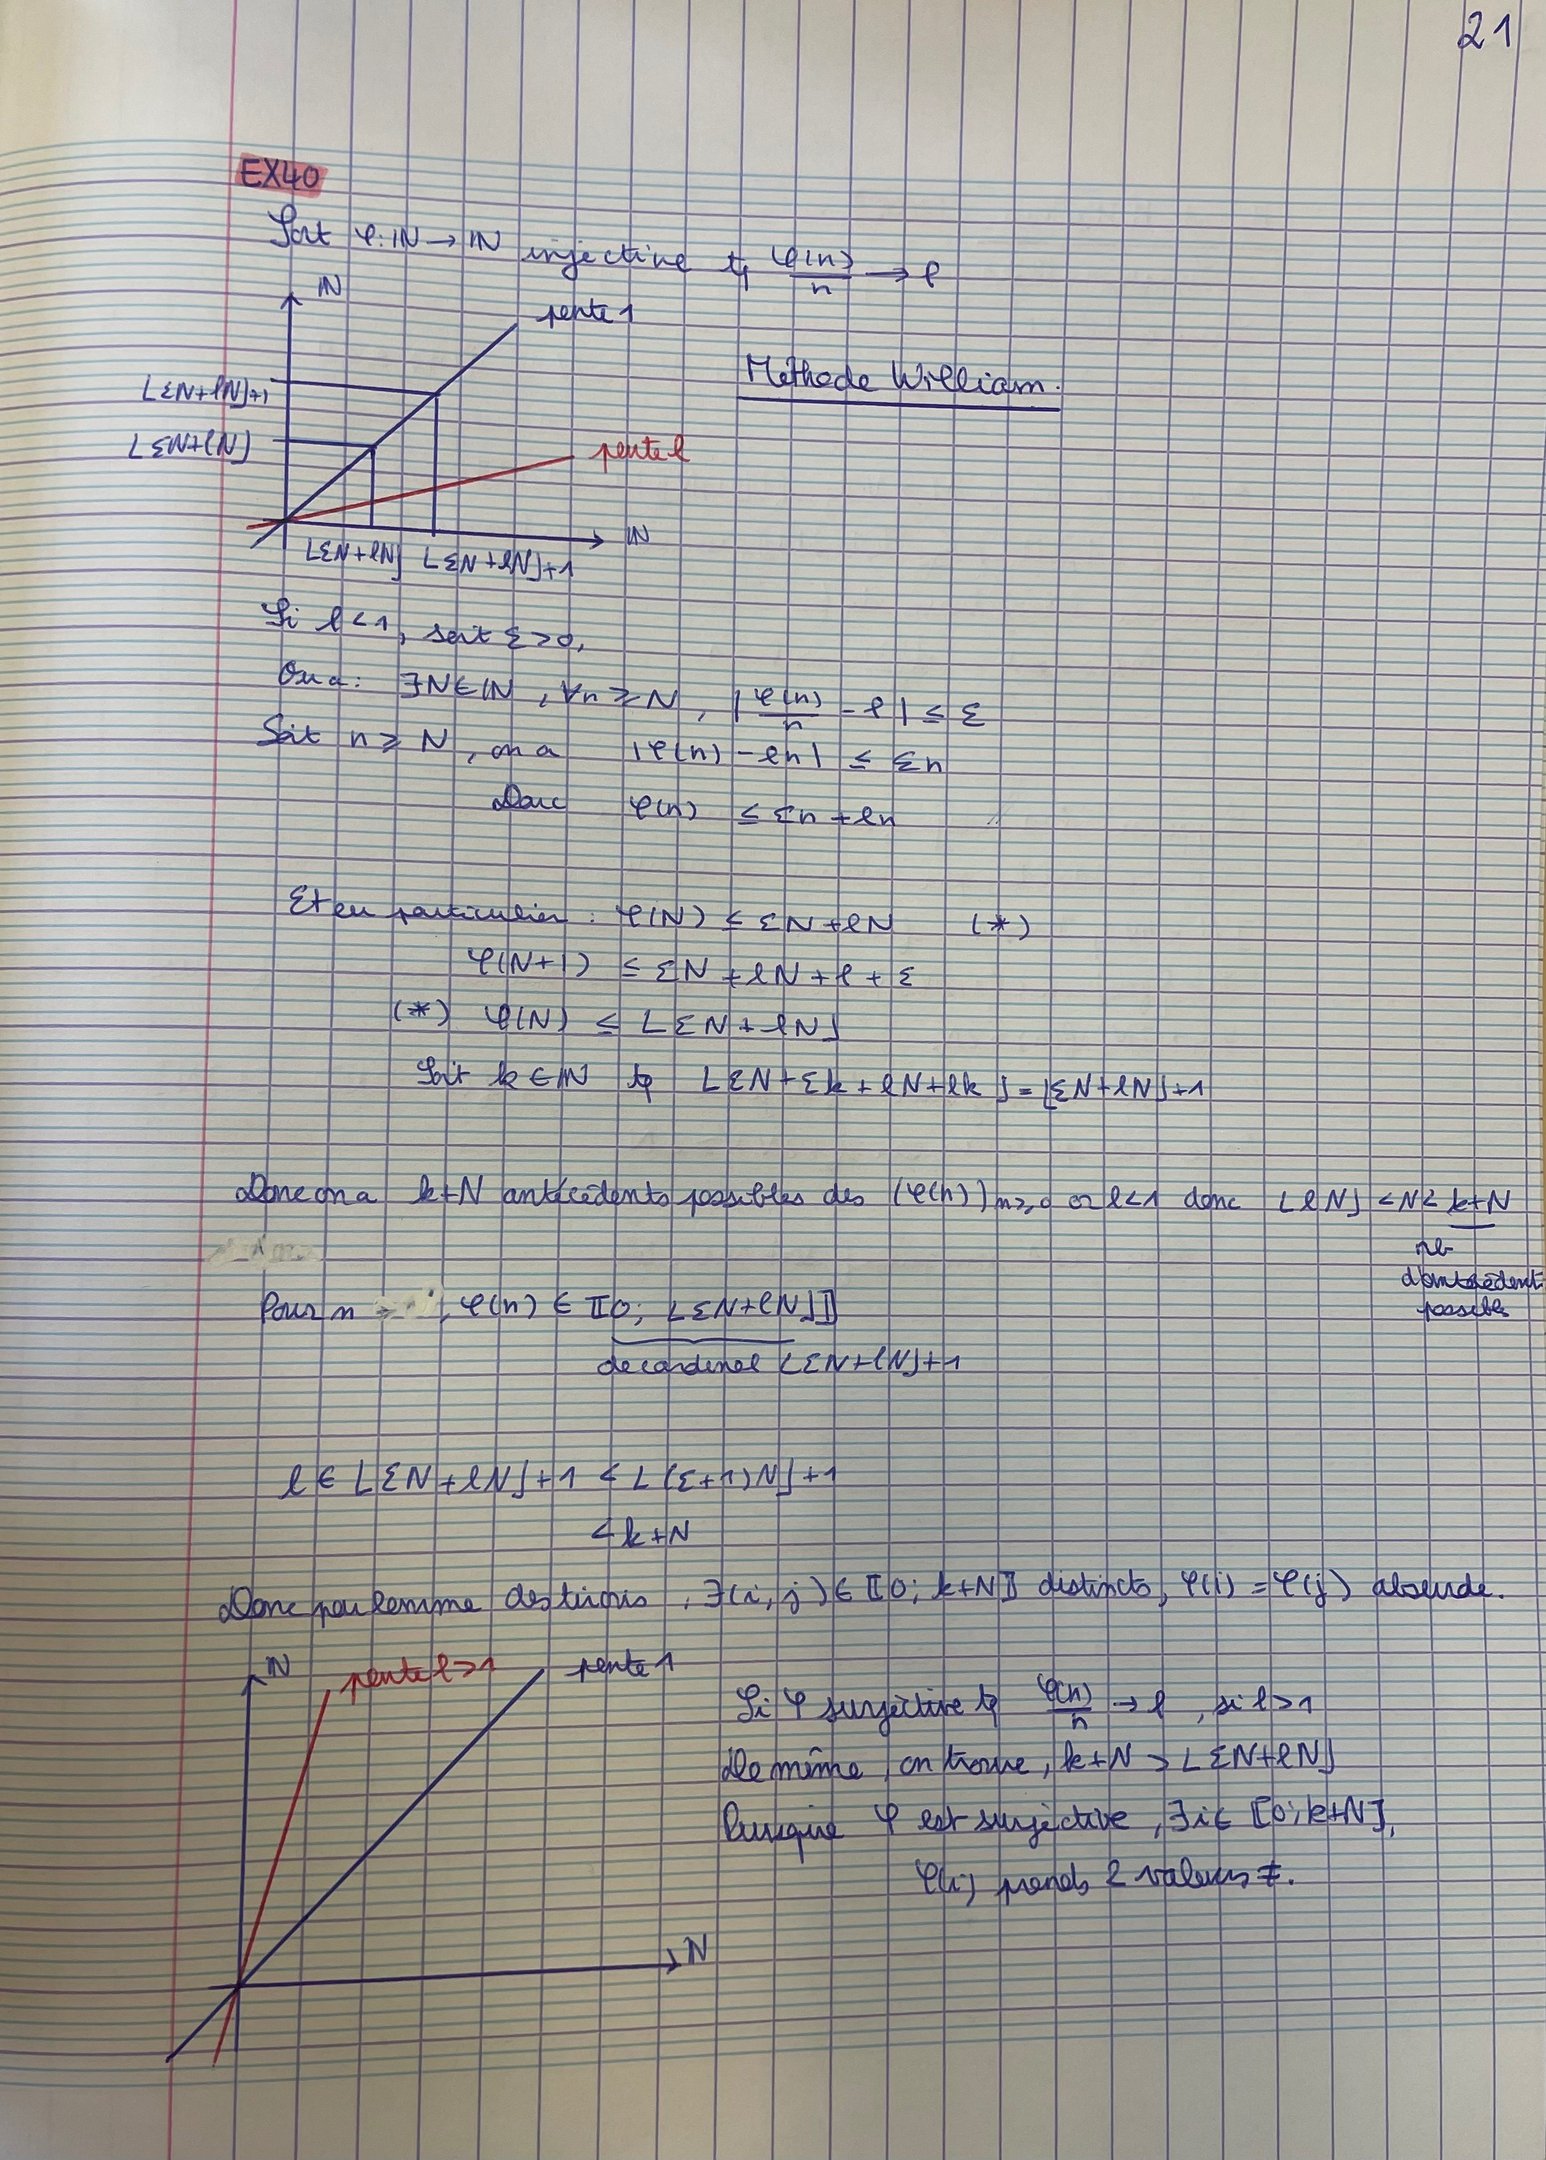 21
EX40
Soit φ: IN → IN injective tq φ(n)/n → l
IN
pente 1
Méthode William.
⌊εN+lN⌋+1
⌊εN+lN⌋
pente l
IN
⌊εN+lN⌋ ⌊εN+lN⌋+1
Si l<1, soit ε>0,
On a: ∃N∈IN, ∀n≥N, |φ(n)/n - l| ≤ ε
Soit n ≥ N, on a |φ(n) - ln| ≤ εn
Donc φ(n) ≤ εn + ln
Et en particulier : φ(N) ≤ εN + lN (*)
φ(N+1) ≤ εN + lN + l + ε
(*) φ(N) ≤ ⌊εN + lN⌋
Soit k ∈ IN tq ⌊εN + εk + lN + lk⌋ = ⌊εN + lN⌋ + 1
Donc on a k+N antécédents possibles des (φ(n))n≥0 or l<1 donc ⌊lN⌋ < N < k+N
nb
d'antécédent
possibles
Pour n ≥ , φ(n) ∈ ⟦0; ⌊εN+lN⌋⟧
de cardinal ⌊εN+lN⌋+1
l ∈ ⌊εN + lN⌋ + 1 < ⌊(ε+1)N⌋ + 1
< k+N
Donc par lemme des tiroirs, ∃(i,j) ∈ ⟦0; k+N⟧ distincts, φ(i) = φ(j) absurde.
N
pente l>1
pente 1
Si φ surjective tq φ(n)/n → l, si l>1
De même, on trouve, k+N > ⌊εN+lN⌋
Puisque φ est surjective, ∃i∈ ⟦0; k+N⟧,
φ(i) prends 2 valeurs ≠.
N